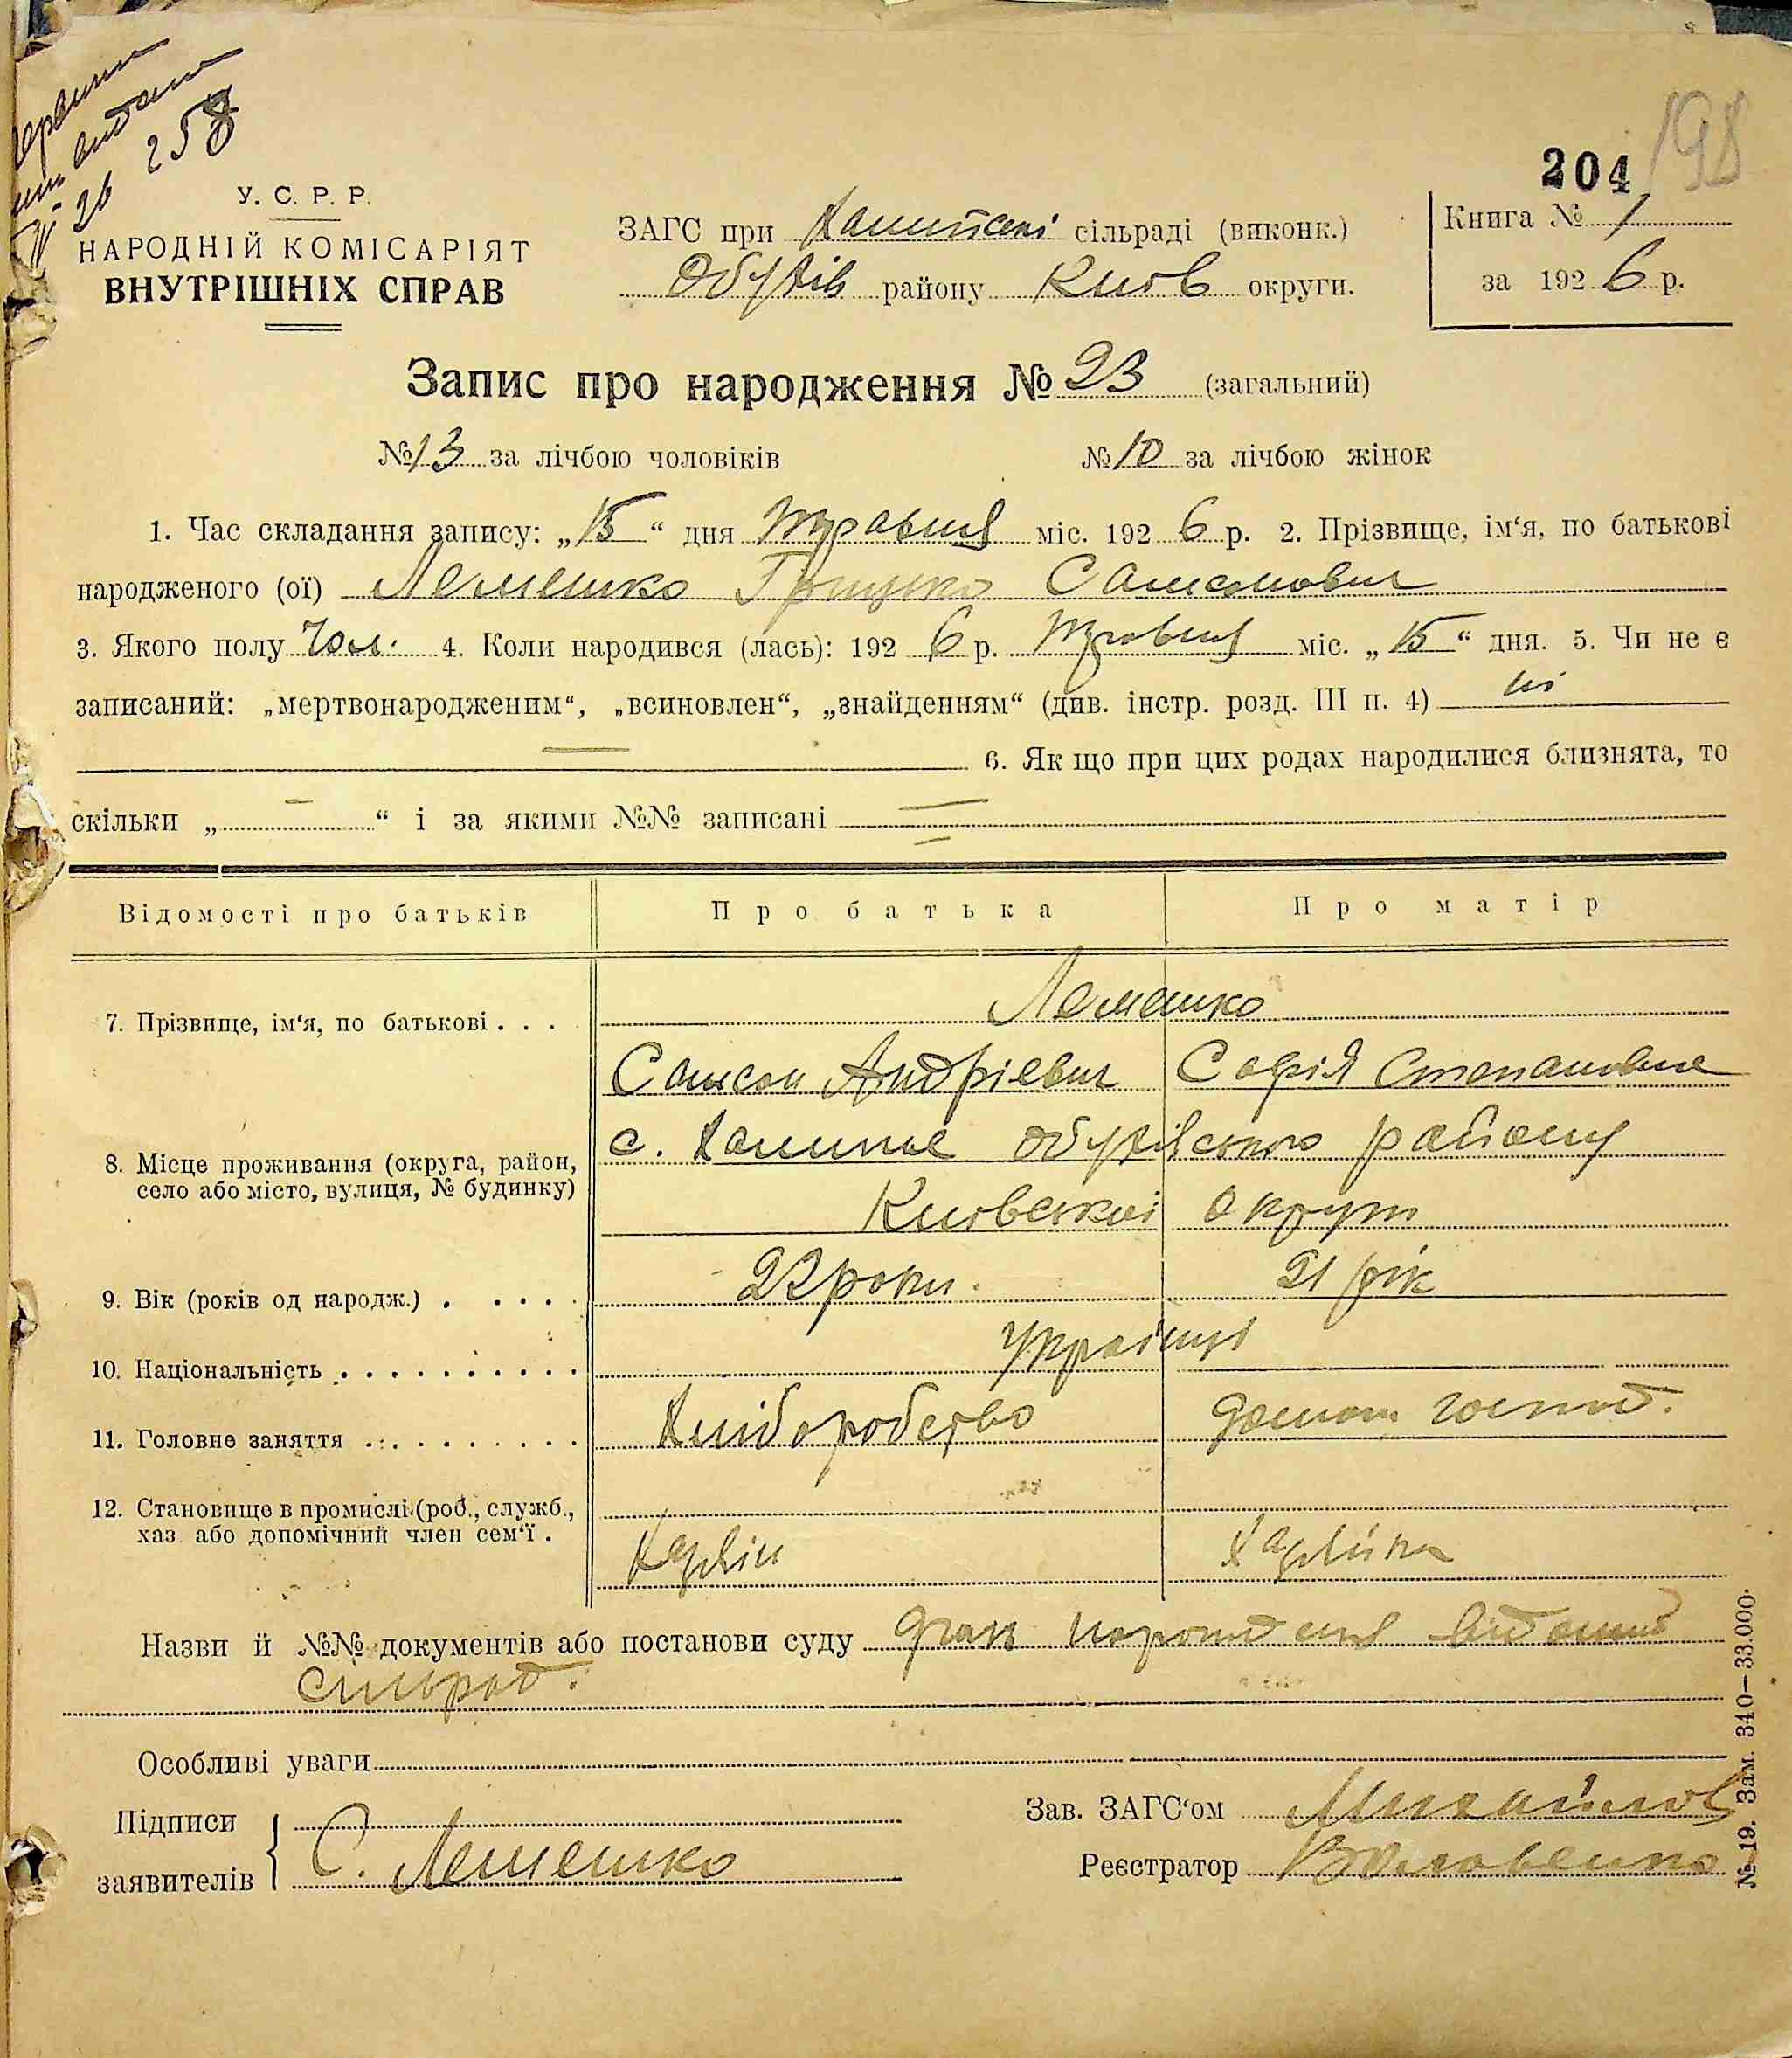 видано
26 258
204 198
У. С. Р. Р.
НАРОДНІЙ КОМІСАРІЯТ
ВНУТРІШНІХ СПРАВ
ЗАГС при сільраді (виконк.)
Обухів району Київ округи.
Книга № 1
за 1926 р.
Запис про народження № 23 (загальний)
№ 13 за лічбою чоловіків № 10 за лічбою жінок
1. Час складання запису: „15“ дня Травня міс. 1926 р. 2. Прізвище, ім‘я, по батькові
народженого (ої) Лемешко Грицько Самсонович
3. Якого полу Чол. 4. Коли народився (лась): 1926 р. Травня міс. „15“ дня. 5. Чи не є
записаний: „мертвонародженим“, „всиновлен“, „знайденням“ (див. інстр. розд. III п. 4) ні
— 6. Як що при цих родах народилися близнята, то
скільки „ — “ і за якими №№ записані —
Відомості про батьків Про батька Про матір
7. Прізвище, ім‘я, по батькові . . . Лемешко
Самсон Андрієвич Софія Степановна
8. Місце проживання (округа, район,
село або місто, вулиця, № будинку)
с. Обухівського району
Київської округи
9. Вік (років од народж.) . . . . . 22 роки. 21 рік
10. Національність . . . . . . . . . . Українці
11. Головне заняття . . . . . . . . . . Хліборобство Домаш. господ.
12. Становище в промислі (роб., служб.,
хаз. або допомічний член сем‘ї .
Хазяїн Хазяйка
Назви й №№ документів або постанови суду
сільрад.
Особливі уваги
Підписи
заявителів
С. Лемешко
Зав. ЗАГС‘ом
Реєстратор
№ 19. Зам. 340—33.000.